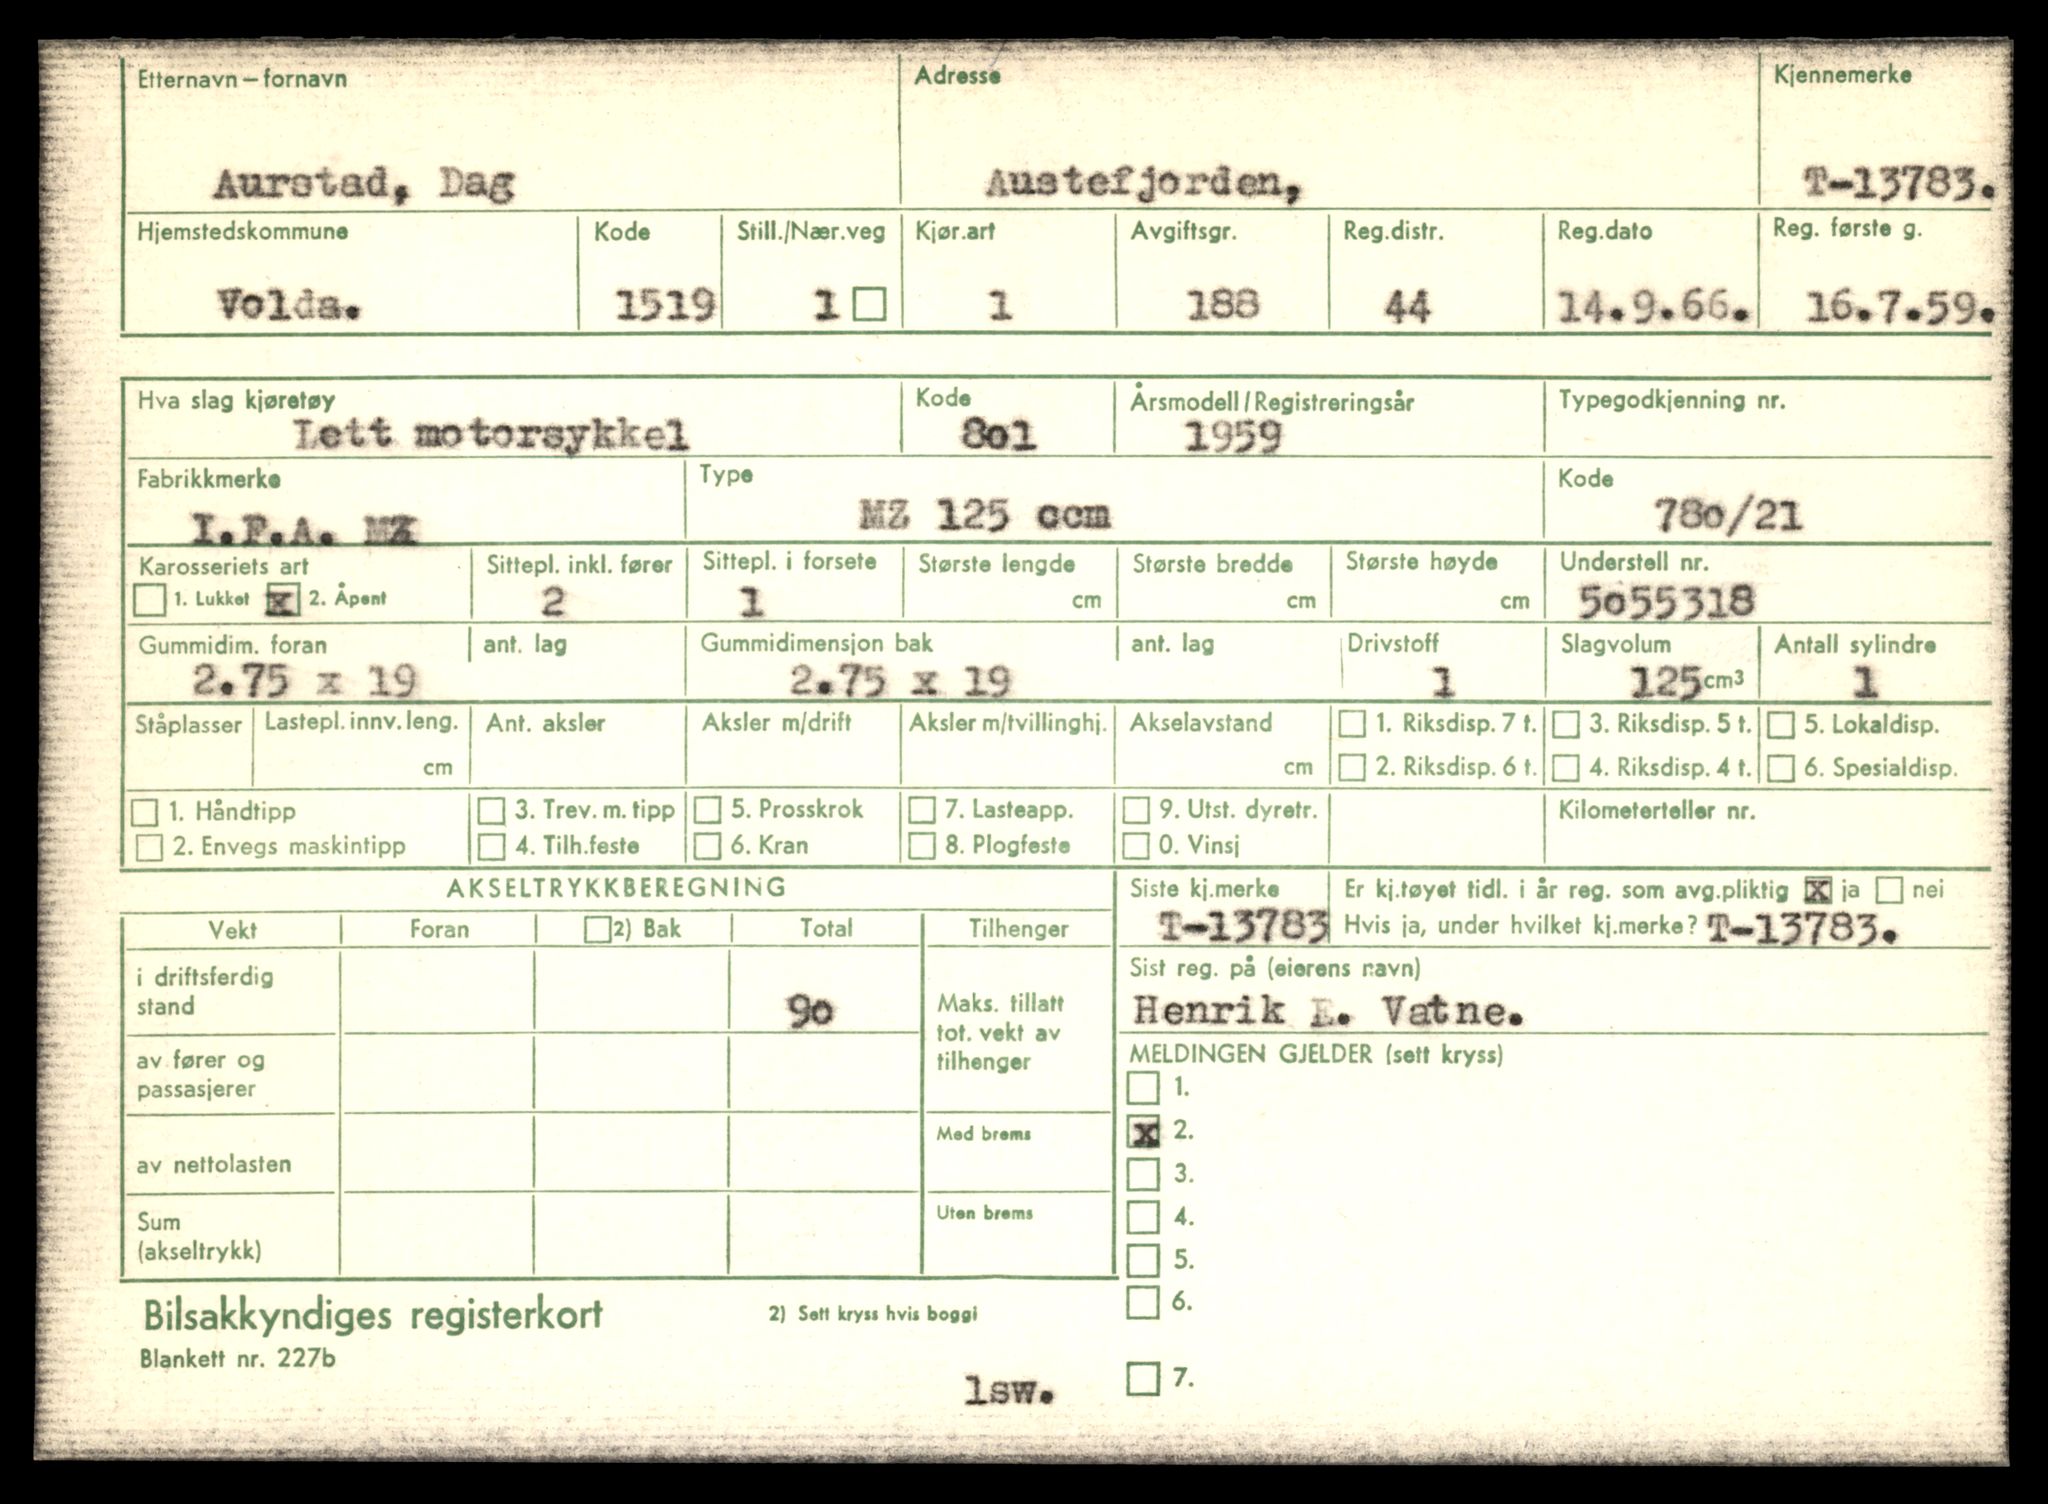 Etternavn – fornavn Adresse Kjennemerke
Aurstad, Dag Austefjorden, T-13783.
Hjemstedskommune Kode Still./Nær.veg Kjør.art Avgiftsgr. Reg.distr. Reg.dato Reg. første g.
Volda. 1519 1 1 188 44 14.9.66. 16.7.59.
Hva slag kjøretøy Kode Årsmodell/Registreringsår Typegodkjenning nr.
Lett motorsykkel 8o1 1959
Fabrikkmerke Type Kode
I.F.A. MZ MZ 125 ccm 78o/21
Karosseriets art Sittepl. inkl. fører Sittepl. i forsete Største lengde Største bredde Største høyde Understell nr.
1. Lukket x 2. Åpent 2 1 cm cm cm 5o55318
Gummidim. foran ant. lag Gummidimensjon bak ant. lag Drivstoff Slagvolum Antall sylindre
2.75 x 19 2.75 x 19 1 125 cm3 1
Ståplasser Lastepl. innv. leng. Ant. aksler Aksler m/drift Aksler m/tvillinghj. Akselavstand 1. Riksdisp. 7 t. 3. Riksdisp. 5 t. 5. Lokaldisp.
cm cm 2. Riksdisp. 6 t. 4. Riksdisp. 4 t. 6. Spesialdisp.
1. Håndtipp 3. Trev. m. tipp 5. Prosskrok 7. Lasteapp. 9. Utst. dyretr. Kilometerteller nr.
2. Envegs maskintipp 4. Tilh.feste 6. Kran 8. Plogfeste 0. Vinsj
AKSELTRYKKBEREGNING Siste kj.merke Er kj.tøyet tidl. i år reg. som avg.pliktig x ja nei
T-13783 Hvis ja, under hvilket kj.merke? T-13783.
Vekt Foran 2) Bak Total Tilhenger
Sist reg. på (eierens navn)
i driftsferdig
stand 9o Maks. tillatt Henrik E. Vatne.
tot. vekt av
av fører og tilhenger MELDINGEN GJELDER (sett kryss)
passasjerer 1.
Med brems x 2.
av nettolasten 3.
Sum Uten brems 4.
(akseltrykk) 5.
Bilsakkyndiges registerkort 2) Sett kryss hvis boggi 6.
Blankett nr. 227b
lsw. 7.